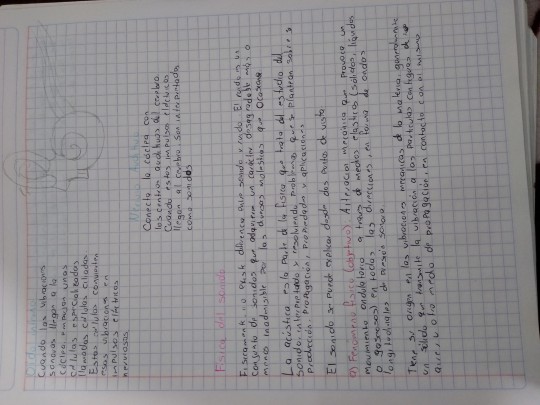 Cuando las vibraciones
sonoras llegan a la
cóclea, empujan unas
células especializadas
llamadas células ciliadas
Estas células convierten
esas vibraciones en
impulsos eléctricos
nerviosos
Conecta la cóclea con
los centros auditivos del cerebro
Cuando estos impulsos eléctricos
llegan al cerebro, son interpretados
como sonidos
Física del sonido
Físicamente no existe diferencia entre sonido y ruido. El ruido es un
conjunto de sonidos que adquieren un carácter desagradable más o
menos inadmisible por las diversas molestias que ocasiona
La acústica es la parte de la física que trata del estudio del
sonido, interpretando y resolviendo problemas que se plantean sobre su
producción, propagación, propiedades y aplicaciones
El sonido se puede explicar desde dos puntos de vista:
Fenómeno físico (objetivo) Alteración mecánica que provoca un
movimiento ondulatorio a través de medios elásticos (sólidos, líquidos
o gaseosos) en todas las direcciones, en forma de ondas
longitudinales de presión sonora.
Tiene su origen en las vibraciones mecánicas de la materia, generalmente
un sólido que transmite la vibración a las partículas contiguas de
aire, u otro medio de propagación, en contacto con el mismo